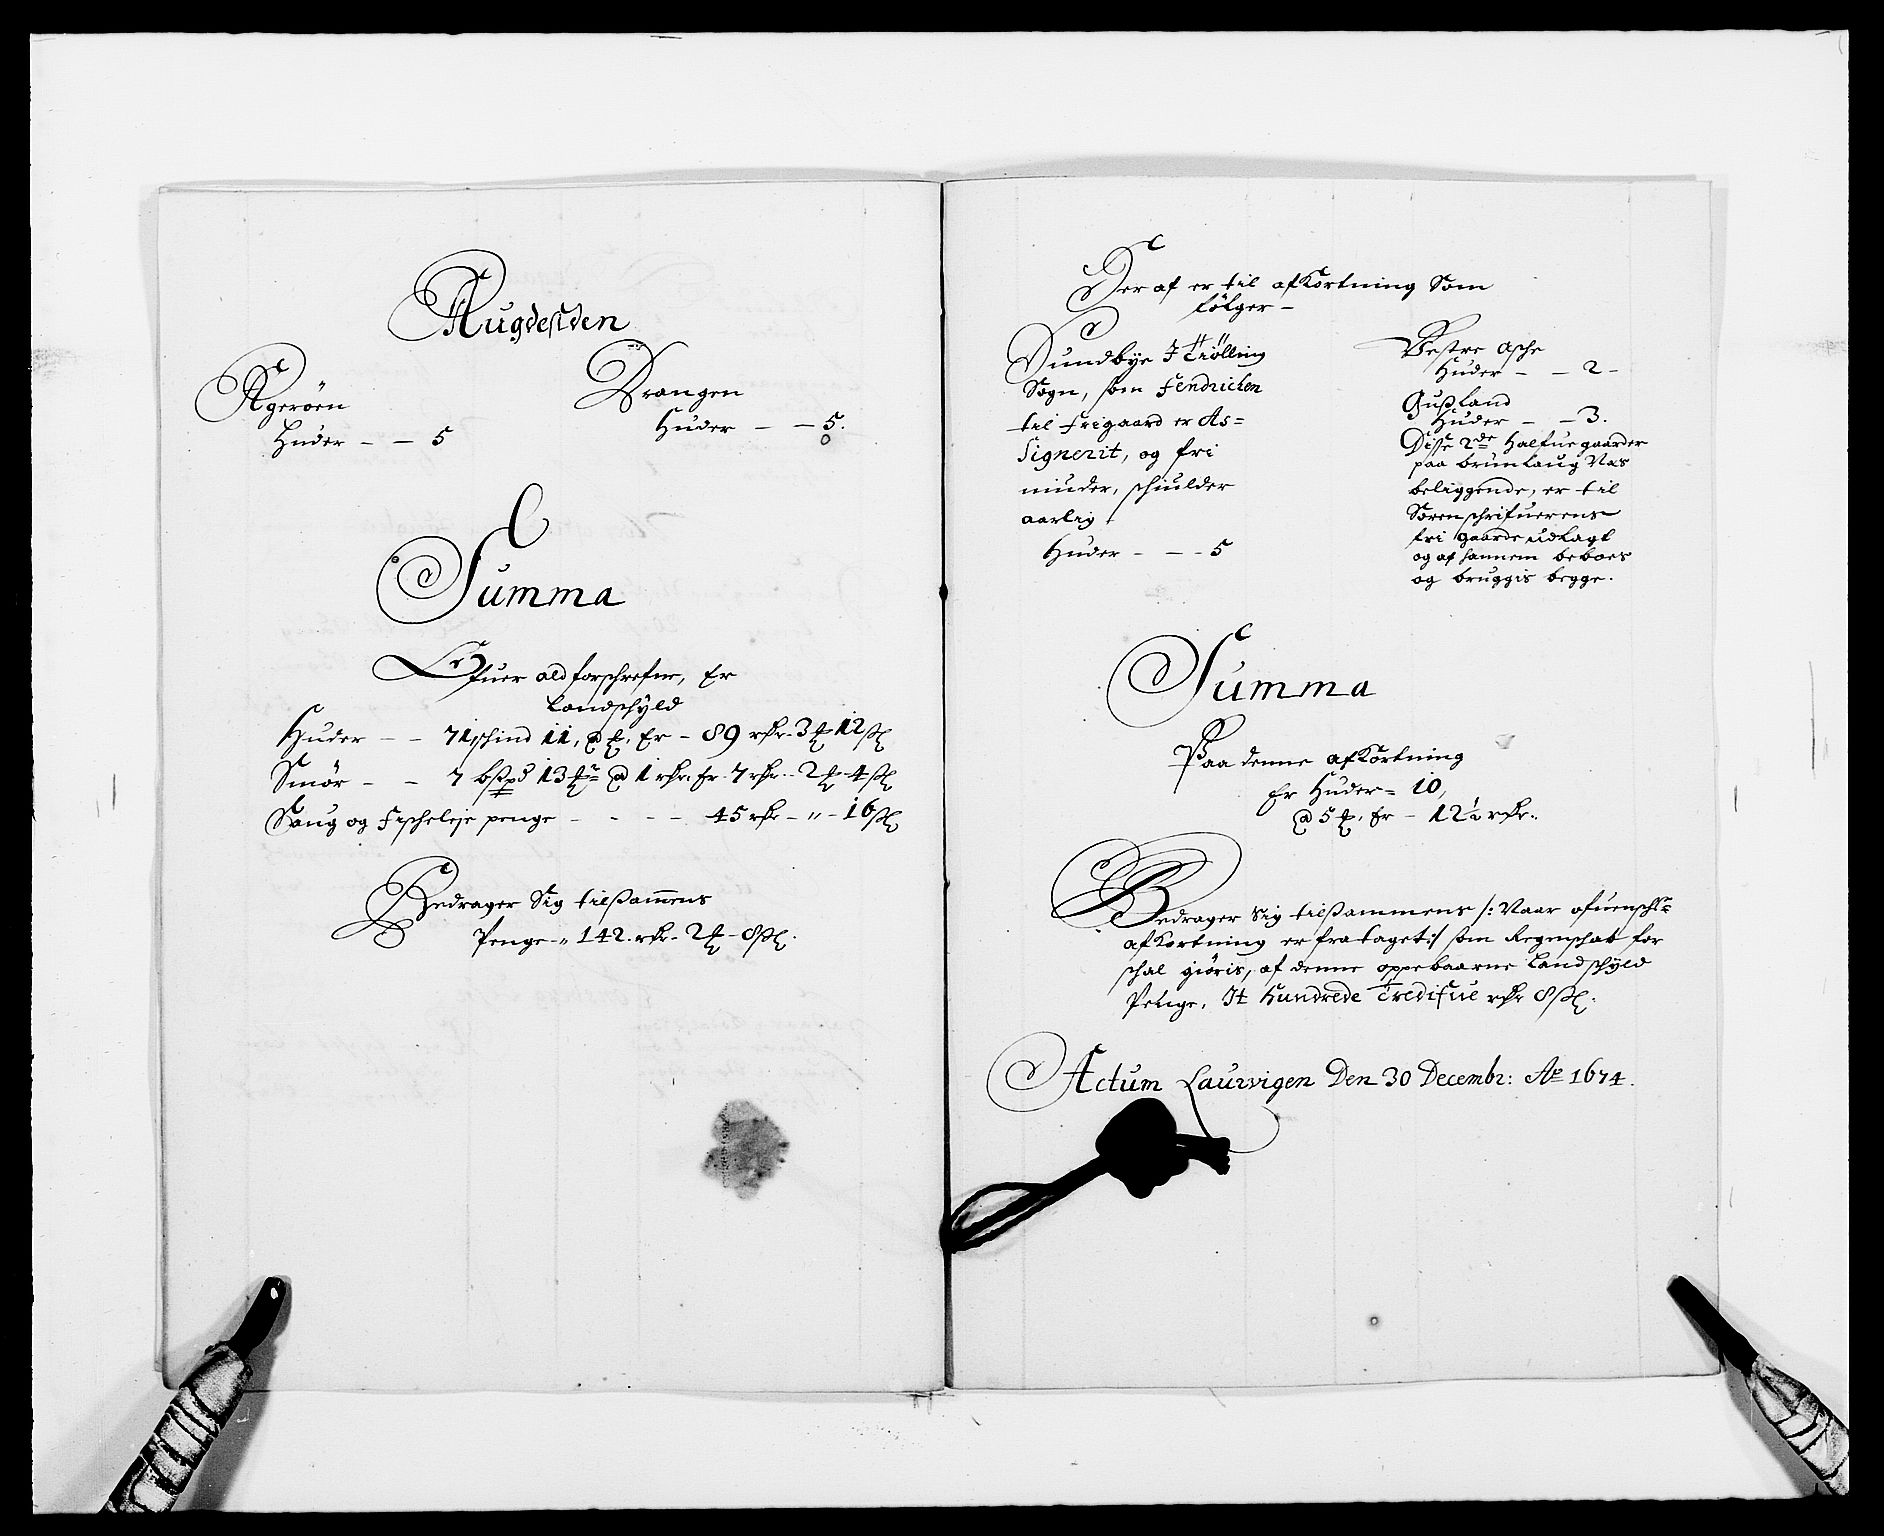 Augdesiden
Agerøen
Huder - - 5
Drangen
Huder - - 5.
Summa
Ofuer ald forschrefne, Er
Landschyld
Huder - - 71, schind 11, a 5 ℔, Er - 89 rdr. 3 ℔ 12 ßl
Smör - - 7 bßpd 13 ℔r a 1 rdr. Er 7 rdr. - 2 ℔ 4 ßl
Saug og Fischeleje penge - - - - 45 rdr - " - 16 ßl
Bedrager Sig tilßammens
Penge - " 142. rdr - 2 ℔ - 8 ßl.
Der af er til afKortning Som
følger -
Sundbye J Tiølling
Sogn, som Fendrichen
til frigaard er As=
Signerit, og fri
niuder, schiulder
aarlig
Huder - - - 5
Vestre Asche
Huder - - 2 -
Gußland
Huder - - 3.
Disse 2de Halfue gaarder
paa brunlaug Næs
beliggende, er til
Sorenschrifuerens
fri gaarde udlagt
og af hannem beboes
og bruggis begge.
Summa
Paa denne afKortning
Er Huder = 10,
a 5 ℔, Er - 12½ rdr.
Bedrager Sig tilßammens /: Naar ofuenschr:
afKortning er fra taget :/ som Regenschab for
schal giøris, af denne oppebaarne Landschyld
Penge, It Hundrede Tredifue rdr 8 ßl.
Actum Laurvigen Den 30 Decembr: Ao 1674.